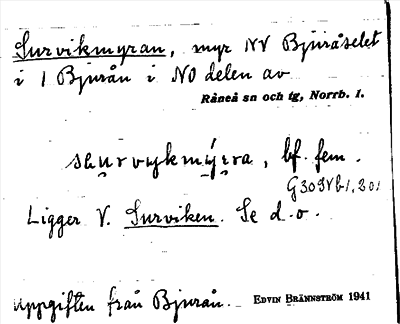 Survikmyran, myr NV Bjuråselet
i 1 Bjurån i NO delen av
Råneå sn och tg, Norrb. l.
suṛvykmýṛa, bf. fem.
Ligger V. Surviken. Se d.o.
Uppgiften från Bjurån. EDVIN BRÄNNSTRÖM 1941